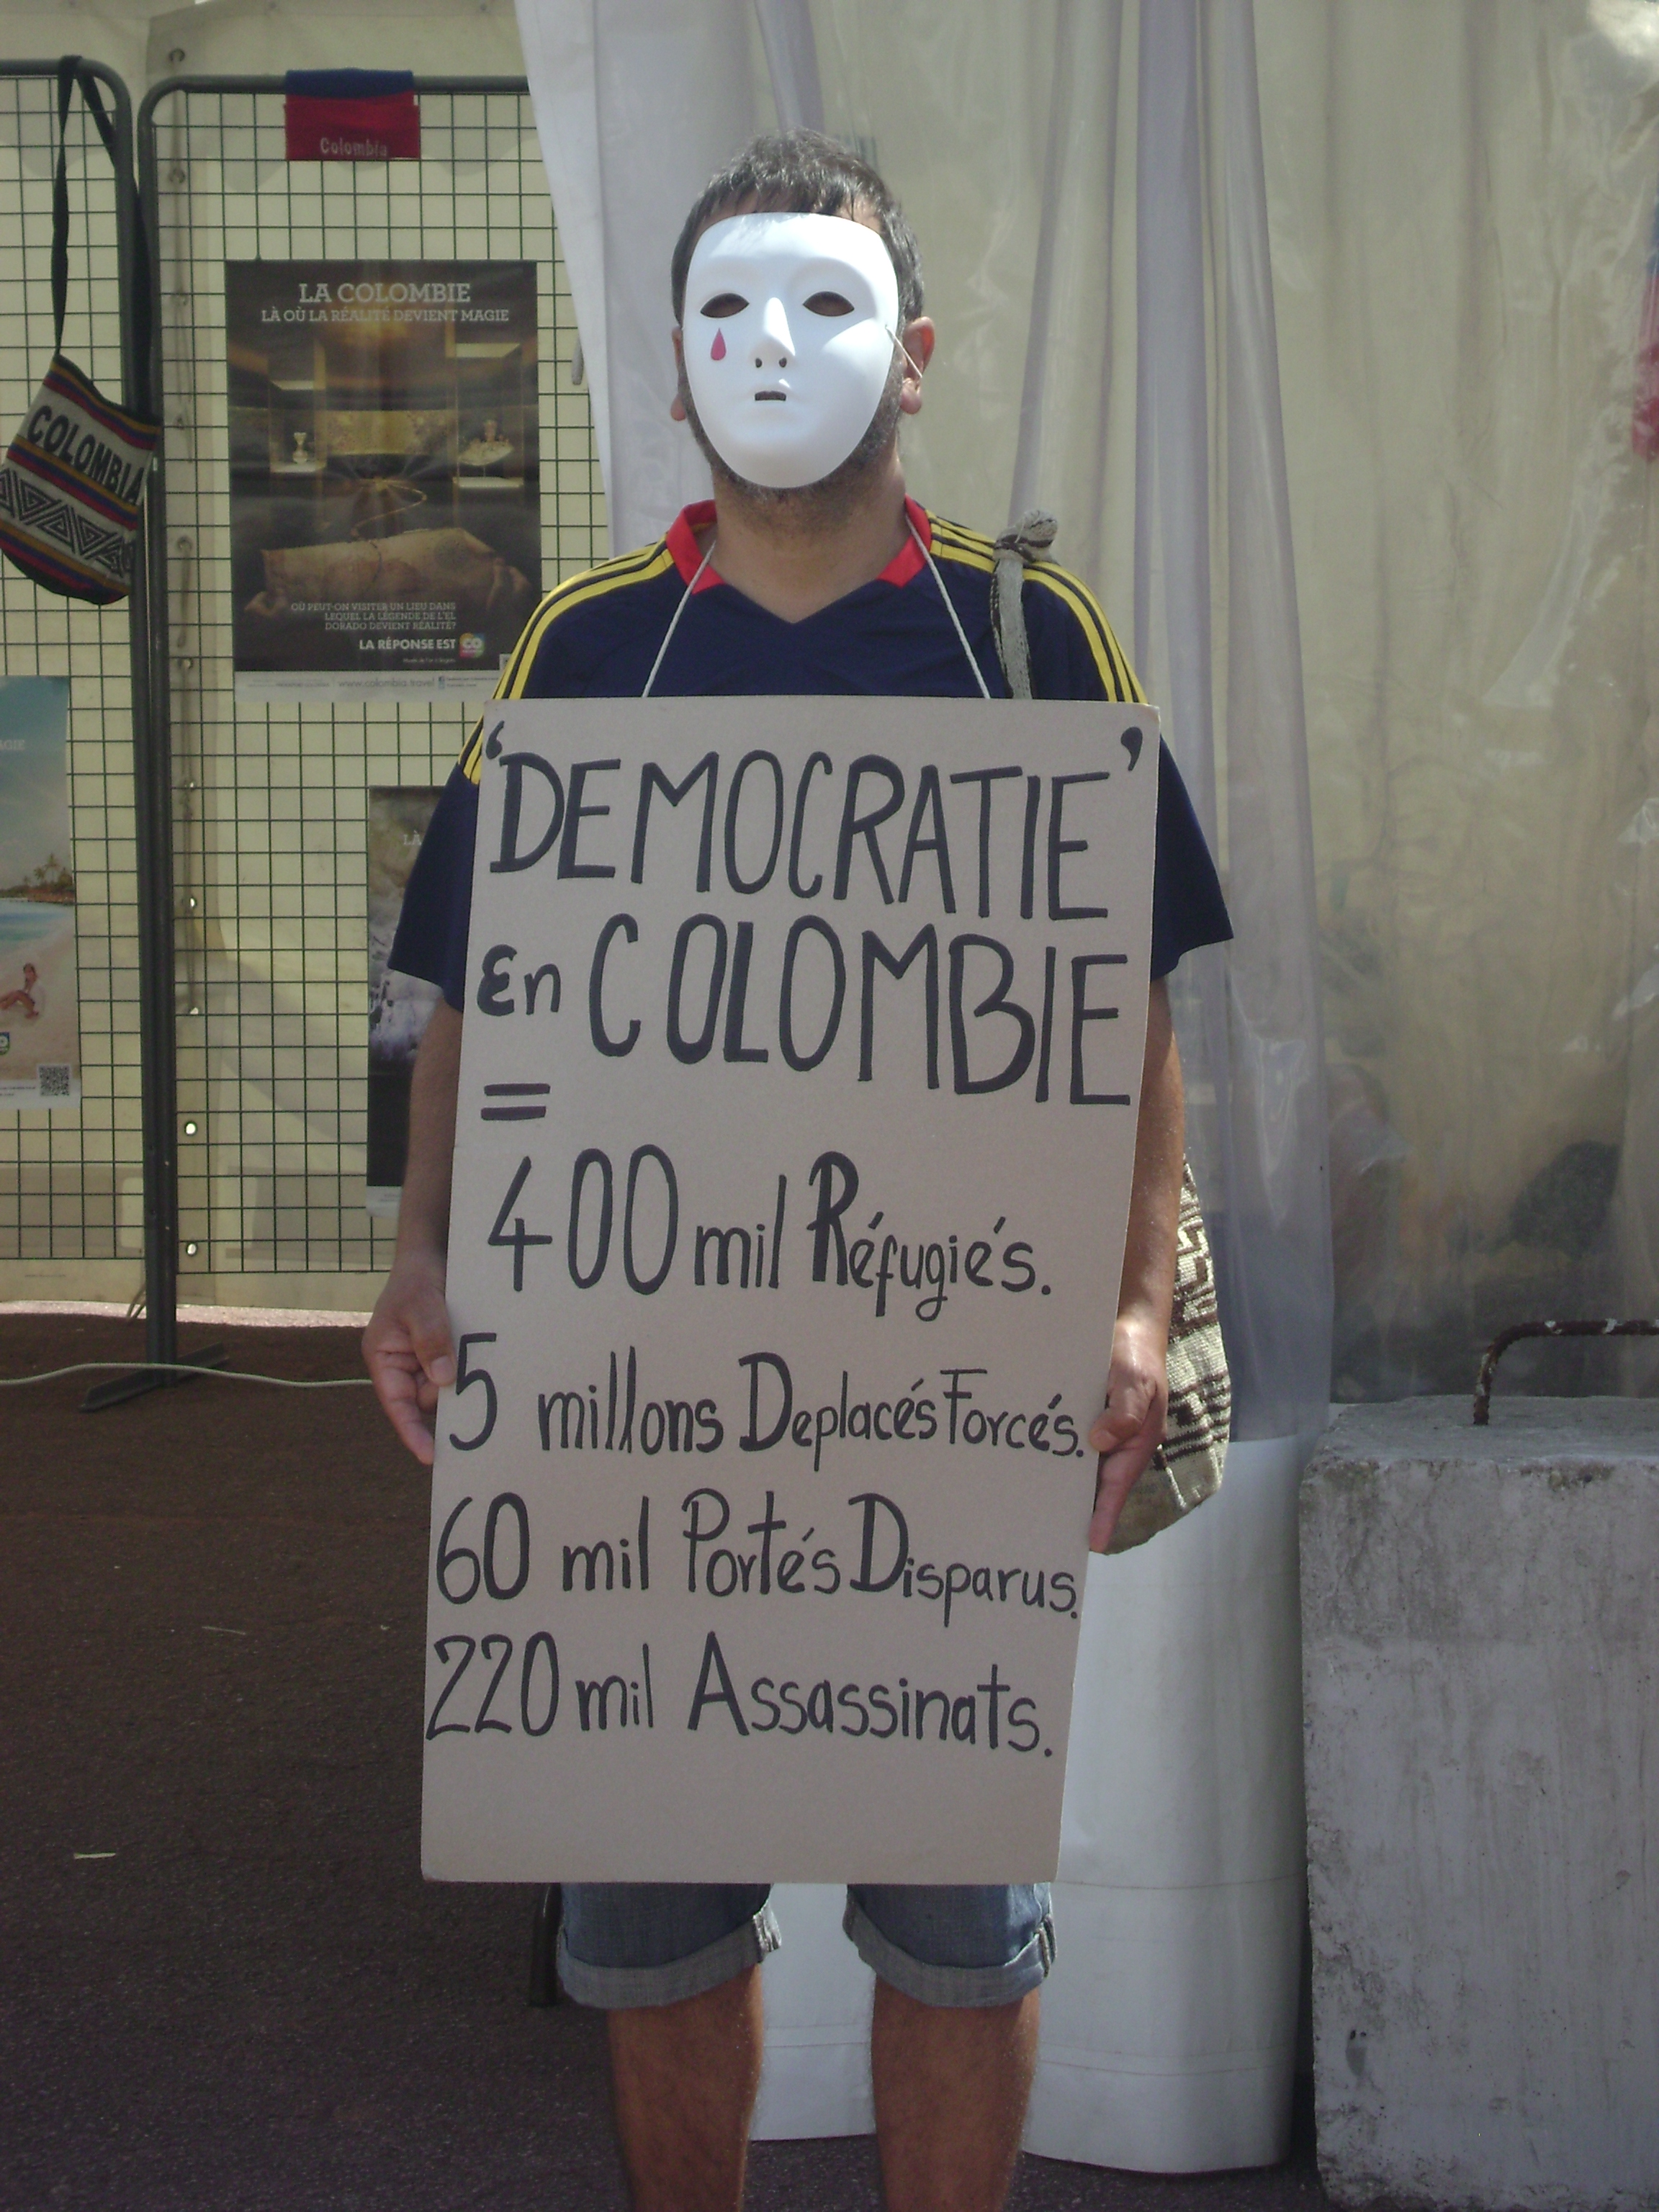 Colombia
LA COLOMBIE
LÀ OÙ LA RÉALITÉ DEVIENT MAGIE
COLOMBIA
OÙ PEUT-ON VISITER UN LIEU DANS
LEQUEL LA LÉGENDE DE L'EL
DORADO DEVIENT RÉALITÉ?
LA RÉPONSE EST CO
www.colombia.travel
AGIE
LÀ
'DEMOCRATIE'
en COLOMBIE
=
400 mil Réfugiés.
5 millons Deplacés Forcés.
60 mil Portés Disparus.
220 mil Assassinats.